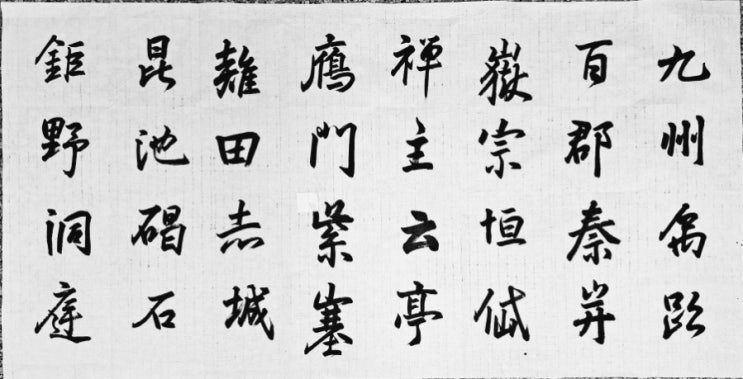 九州禹跡
百郡秦并
嶽宗恒岱
禅主云亭
鴈門紫塞
雞田赤城
昆池碣石
鉅野洞庭